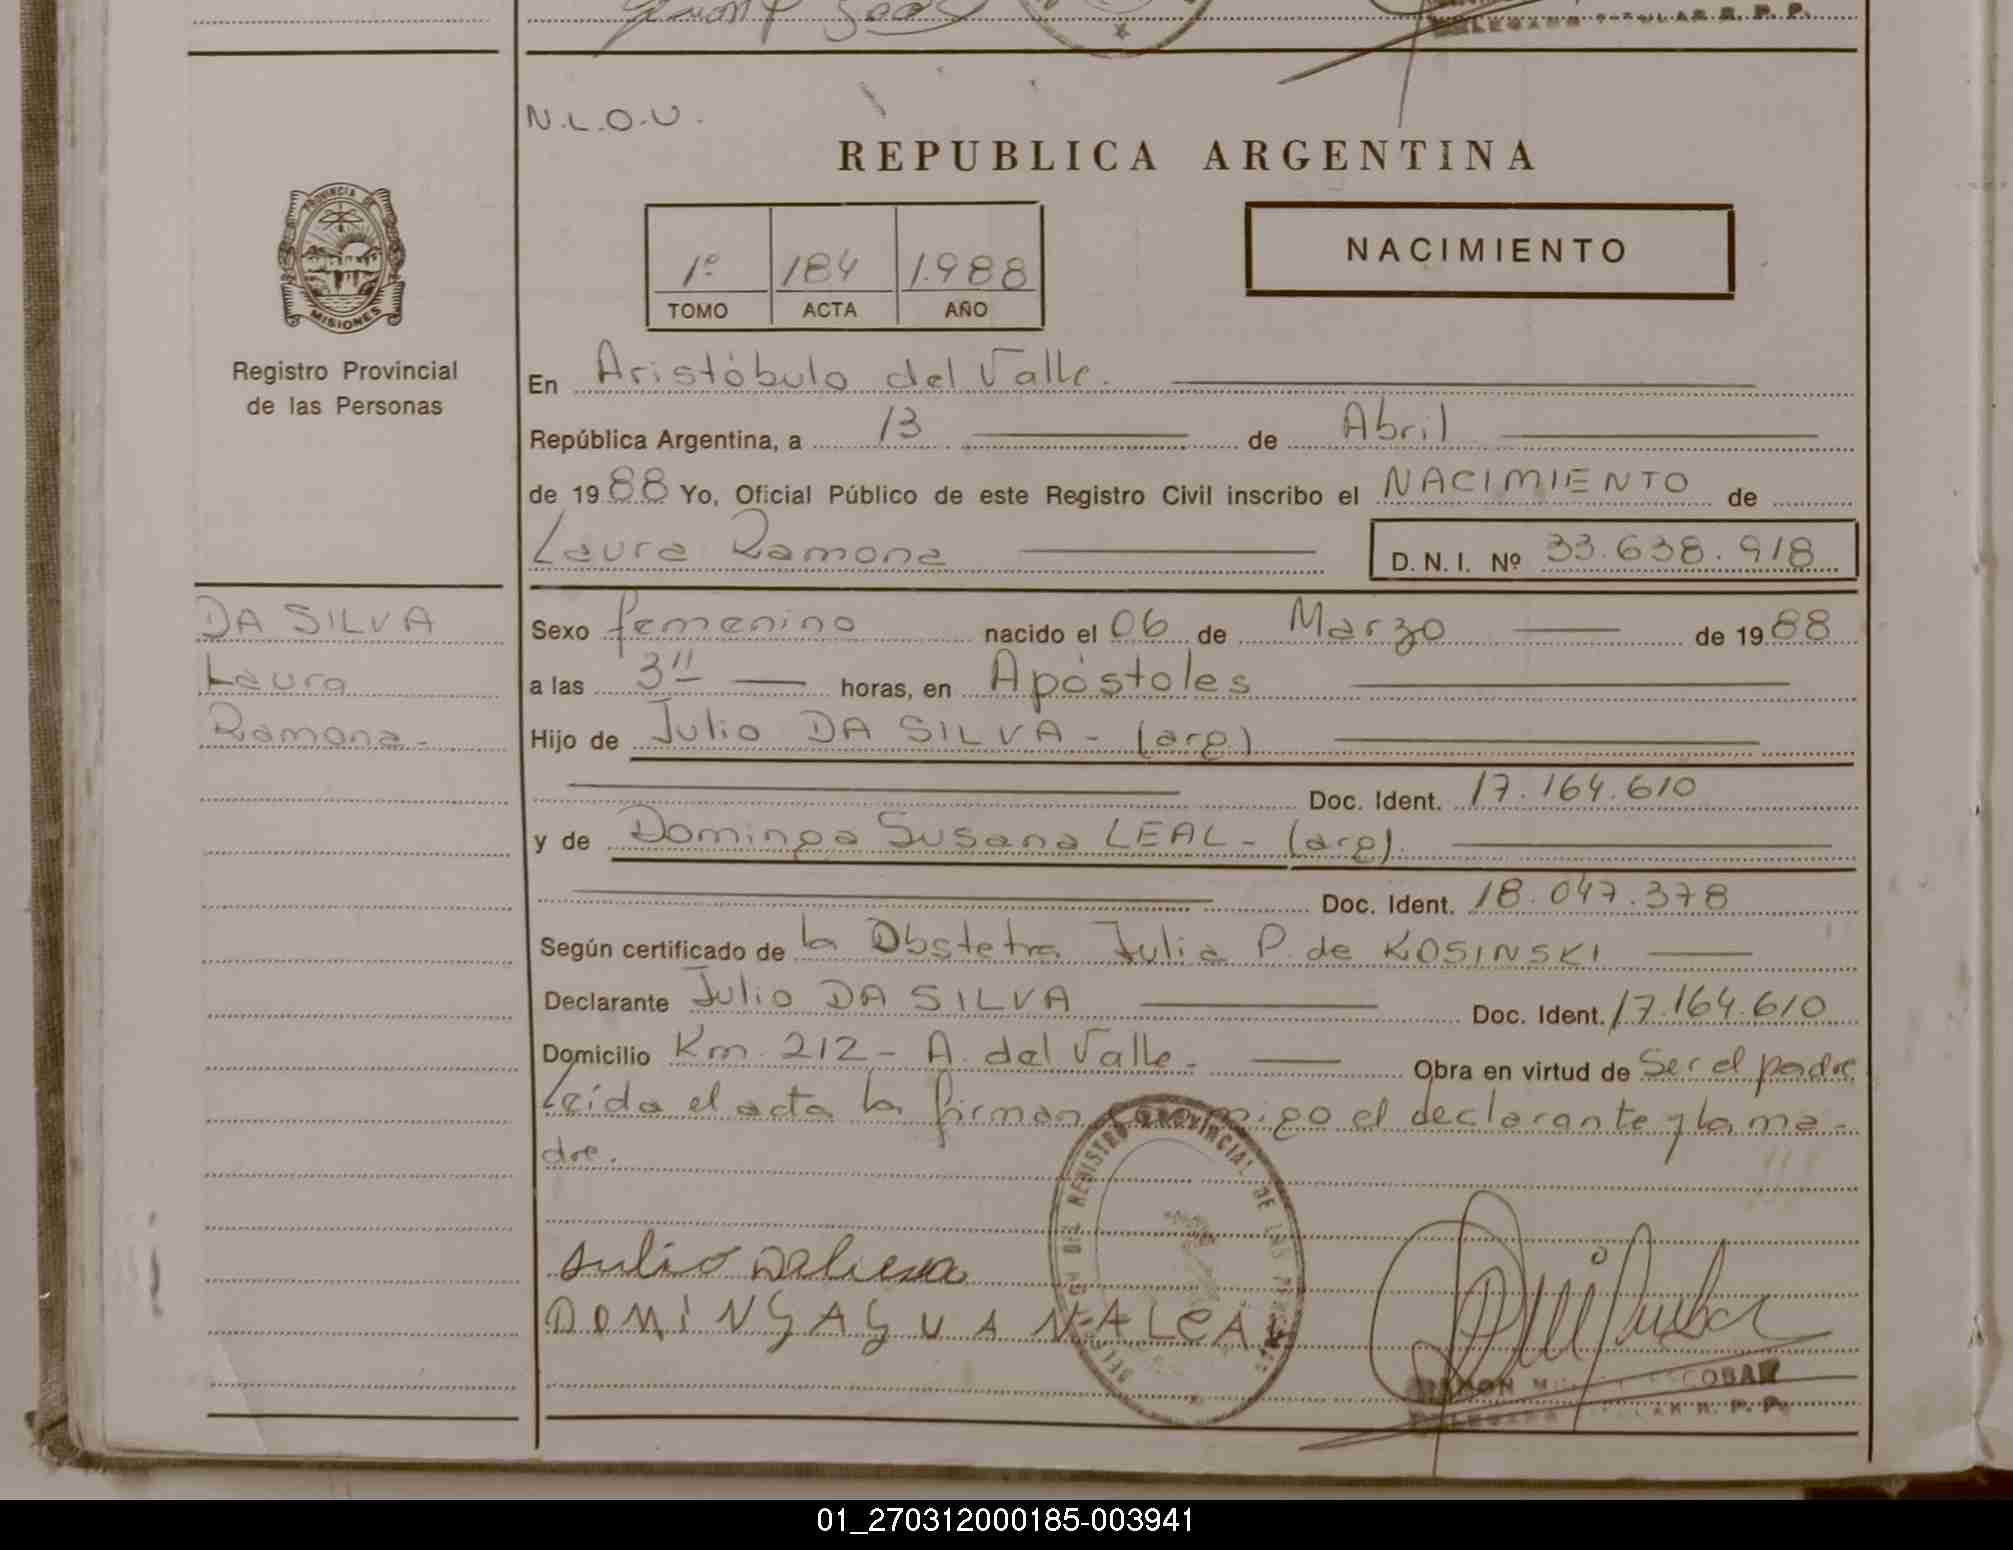 N.L.O.U.
REPUBLICA ARGENTINA
PROVINCIA DE
MISIONES
Registro Provincial
de las Personas
1º 184 1.988
TOMO ACTA AÑO
NACIMIENTO
En Aristóbulo del Valle.
República Argentina, a 13 de Abril
de 1988 Yo, Oficial Público de este Registro Civil inscribo el NACIMIENTO de
Laura Ramona D. N. I. Nº 33.638.918
DA SILVA
Laura
Ramona -
Sexo femenino nacido el 06 de Marzo de 1988
a las 3 horas, en Apóstoles
Hijo de Julio DA SILVA - (arg)
Doc. Ident. 17.164.610
y de Dominga Susana LEAL - (arg).
Doc. Ident. 18.047.378
Según certificado de la Obstetra Julia P. de KOSINSKI
Declarante Julio DA SILVA Doc. Ident. 17.164.610
Domicilio Km. 212 - A. del Valle - Obra en virtud de Ser el padre
leída el acta la firman conmigo el declarante y la ma-
dre.
REGISTRO PROVINCIAL DE LAS
ESCOBAR
R. P. P.
01_270312000185-003941